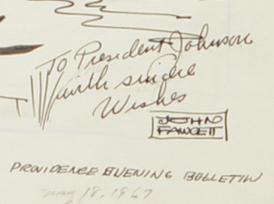 To President Johnson
with sincere
Wishes
JOHN
FAWCETT
PROVIDENCE EVENING BULLETIN
May 18, 1967